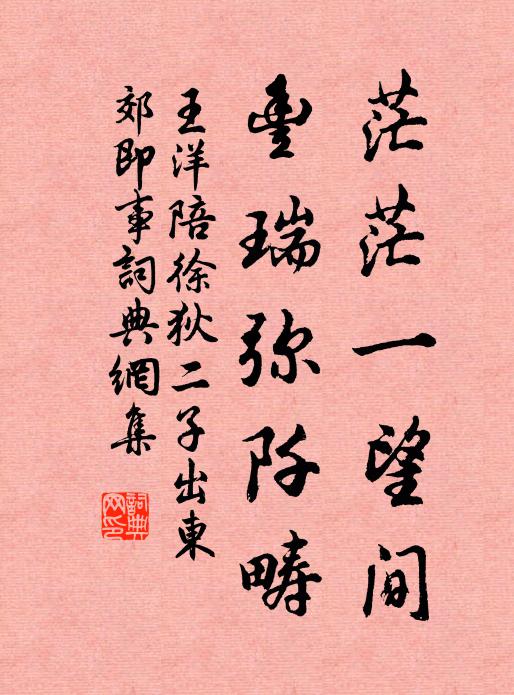 茫茫一望间
豊瑞弥阡畴
王洋陪徐狄二子出東
郊即事詞典網集
詞典
网印